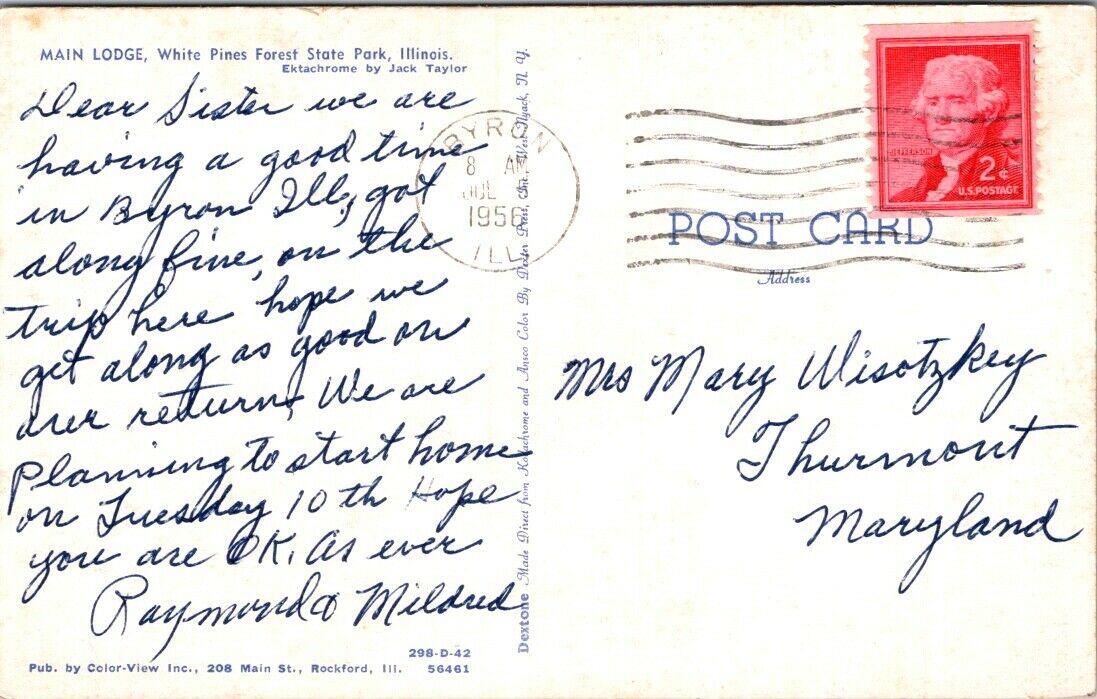 MAIN LODGE, White Pines Forest State Park, Illinois.
Ektachrome by Jack Taylor
Dear Sister we are
having a good time
in Byron Ill, got
along fine, on the
trip here hope we
get along as good on
our return, We are
Planning to start home
on Tuesday 10 th Hope
you are OK. As ever
Raymond & Mildred
298-D-42
Pub. by Color-View Inc., 208 Main St., Rockford, Ill. 56461
Dextone Made Direct from Kodachrome and Ansco Color By Dexter Press, Inc., West Nyack, N. Y.
BYRON
8 AM
JUL
1956
ILL.
JEFFERSON
2¢
U.S. POSTAGE
POST CARD
Address
Mrs Mary Wisotzkey
Thurmont
Maryland